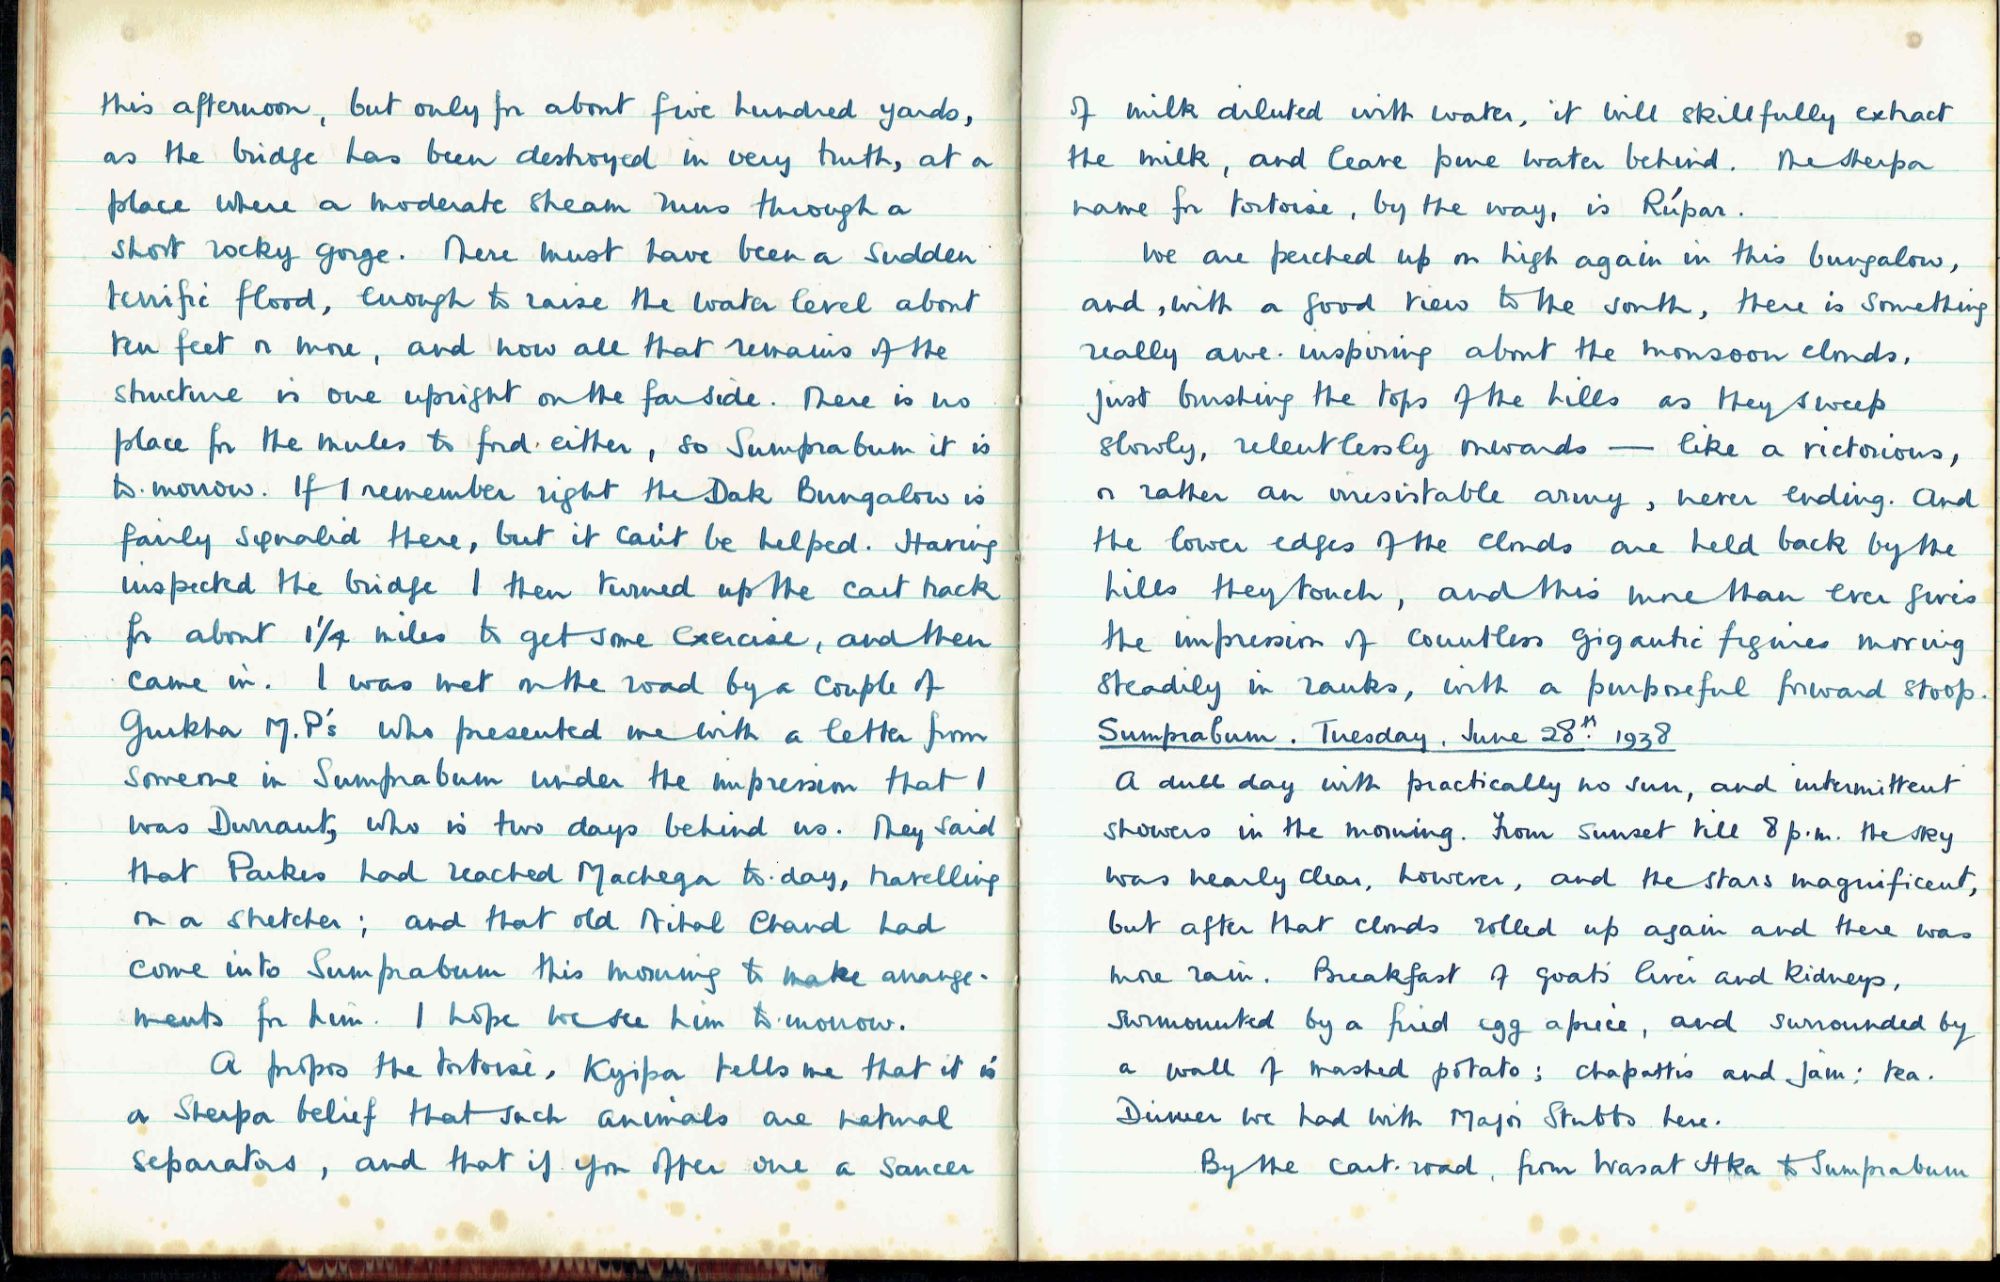 this afternoon, but only for about five hundred yards,
as the bridge has been destroyed in very truth, at a
place where a moderate stream runs through a
short rocky gorge. There must have been a sudden
terrific flood, enough to raise the water level about
ten feet or more, and now all that remains of the
structure is one upright on the far side. There is no
place for the mules to ford either, so Sumprabum it is
to-morrow. If I remember right the Dak Bungalow is
fairly squalid there, but it can't be helped. Having
inspected the bridge I then turned up the cart track
for about 1¼ miles to get some exercise, and then
came in. I was met on the road by a couple of
Gurkha M.P's who presented me with a letter from
someone in Sumprabum under the impression that I
was Durrant, who is two days behind us. They said
that Parkes had reached Machega to-day, travelling
on a stretcher; and that old Nihal Chand had
come into Sumprabum this morning to make arrange-
ments for him. I hope we see him to-morrow.
A propos the tortoise, Kyipa tells me that it is
a Sherpa belief that such animals are natural
separators, and that if you offer one a saucer
of milk diluted with water, it will skillfully extract
the milk, and leave pure water behind. The Sherpa
name for tortoise, by the way, is Rúpar.
We are perched up on high again in this bungalow,
and, with a good view to the south, there is something
really awe-inspiring about the monsoon clouds,
just brushing the tops of the hills as they sweep
slowly, relentlessly onwards — like a victorious,
or rather an irresistable army, never ending. And
the lower edges of the clouds are held back by the
hills they touch, and this more than ever gives
the impression of countless gigantic figures moving
steadily in ranks, with a purposeful forward stoop.
Sumprabum. Tuesday. June 28th. 1938
A dull day with practically no sun, and intermittent
showers in the morning. From sunset till 8 p.m. the sky
was nearly clear, however, and the stars magnificent,
but after that clouds rolled up again and there was
more rain. Breakfast of goats' liver and kidneys,
surmounted by a fried egg apiece, and surrounded by
a wall of mashed potato; chapattis and jam; tea.
Dinner we had with Major Stubbs here.
By the cart-road, from Wasat Hka to Sumprabum